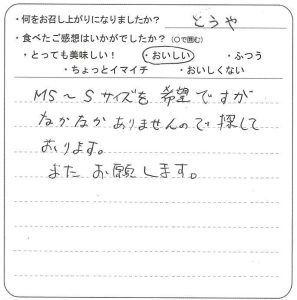 ・何をお召し上がりになりましたか? とうや
・食べたご感想はいかがでしたか?(○で囲む)
・とっても美味しい! ・おいしい ・ふつう
・ちょっとイマイチ ・おいしくない
MS～Sサイズを希望ですが
なかなかありませんので探して
おります。
またお願します。